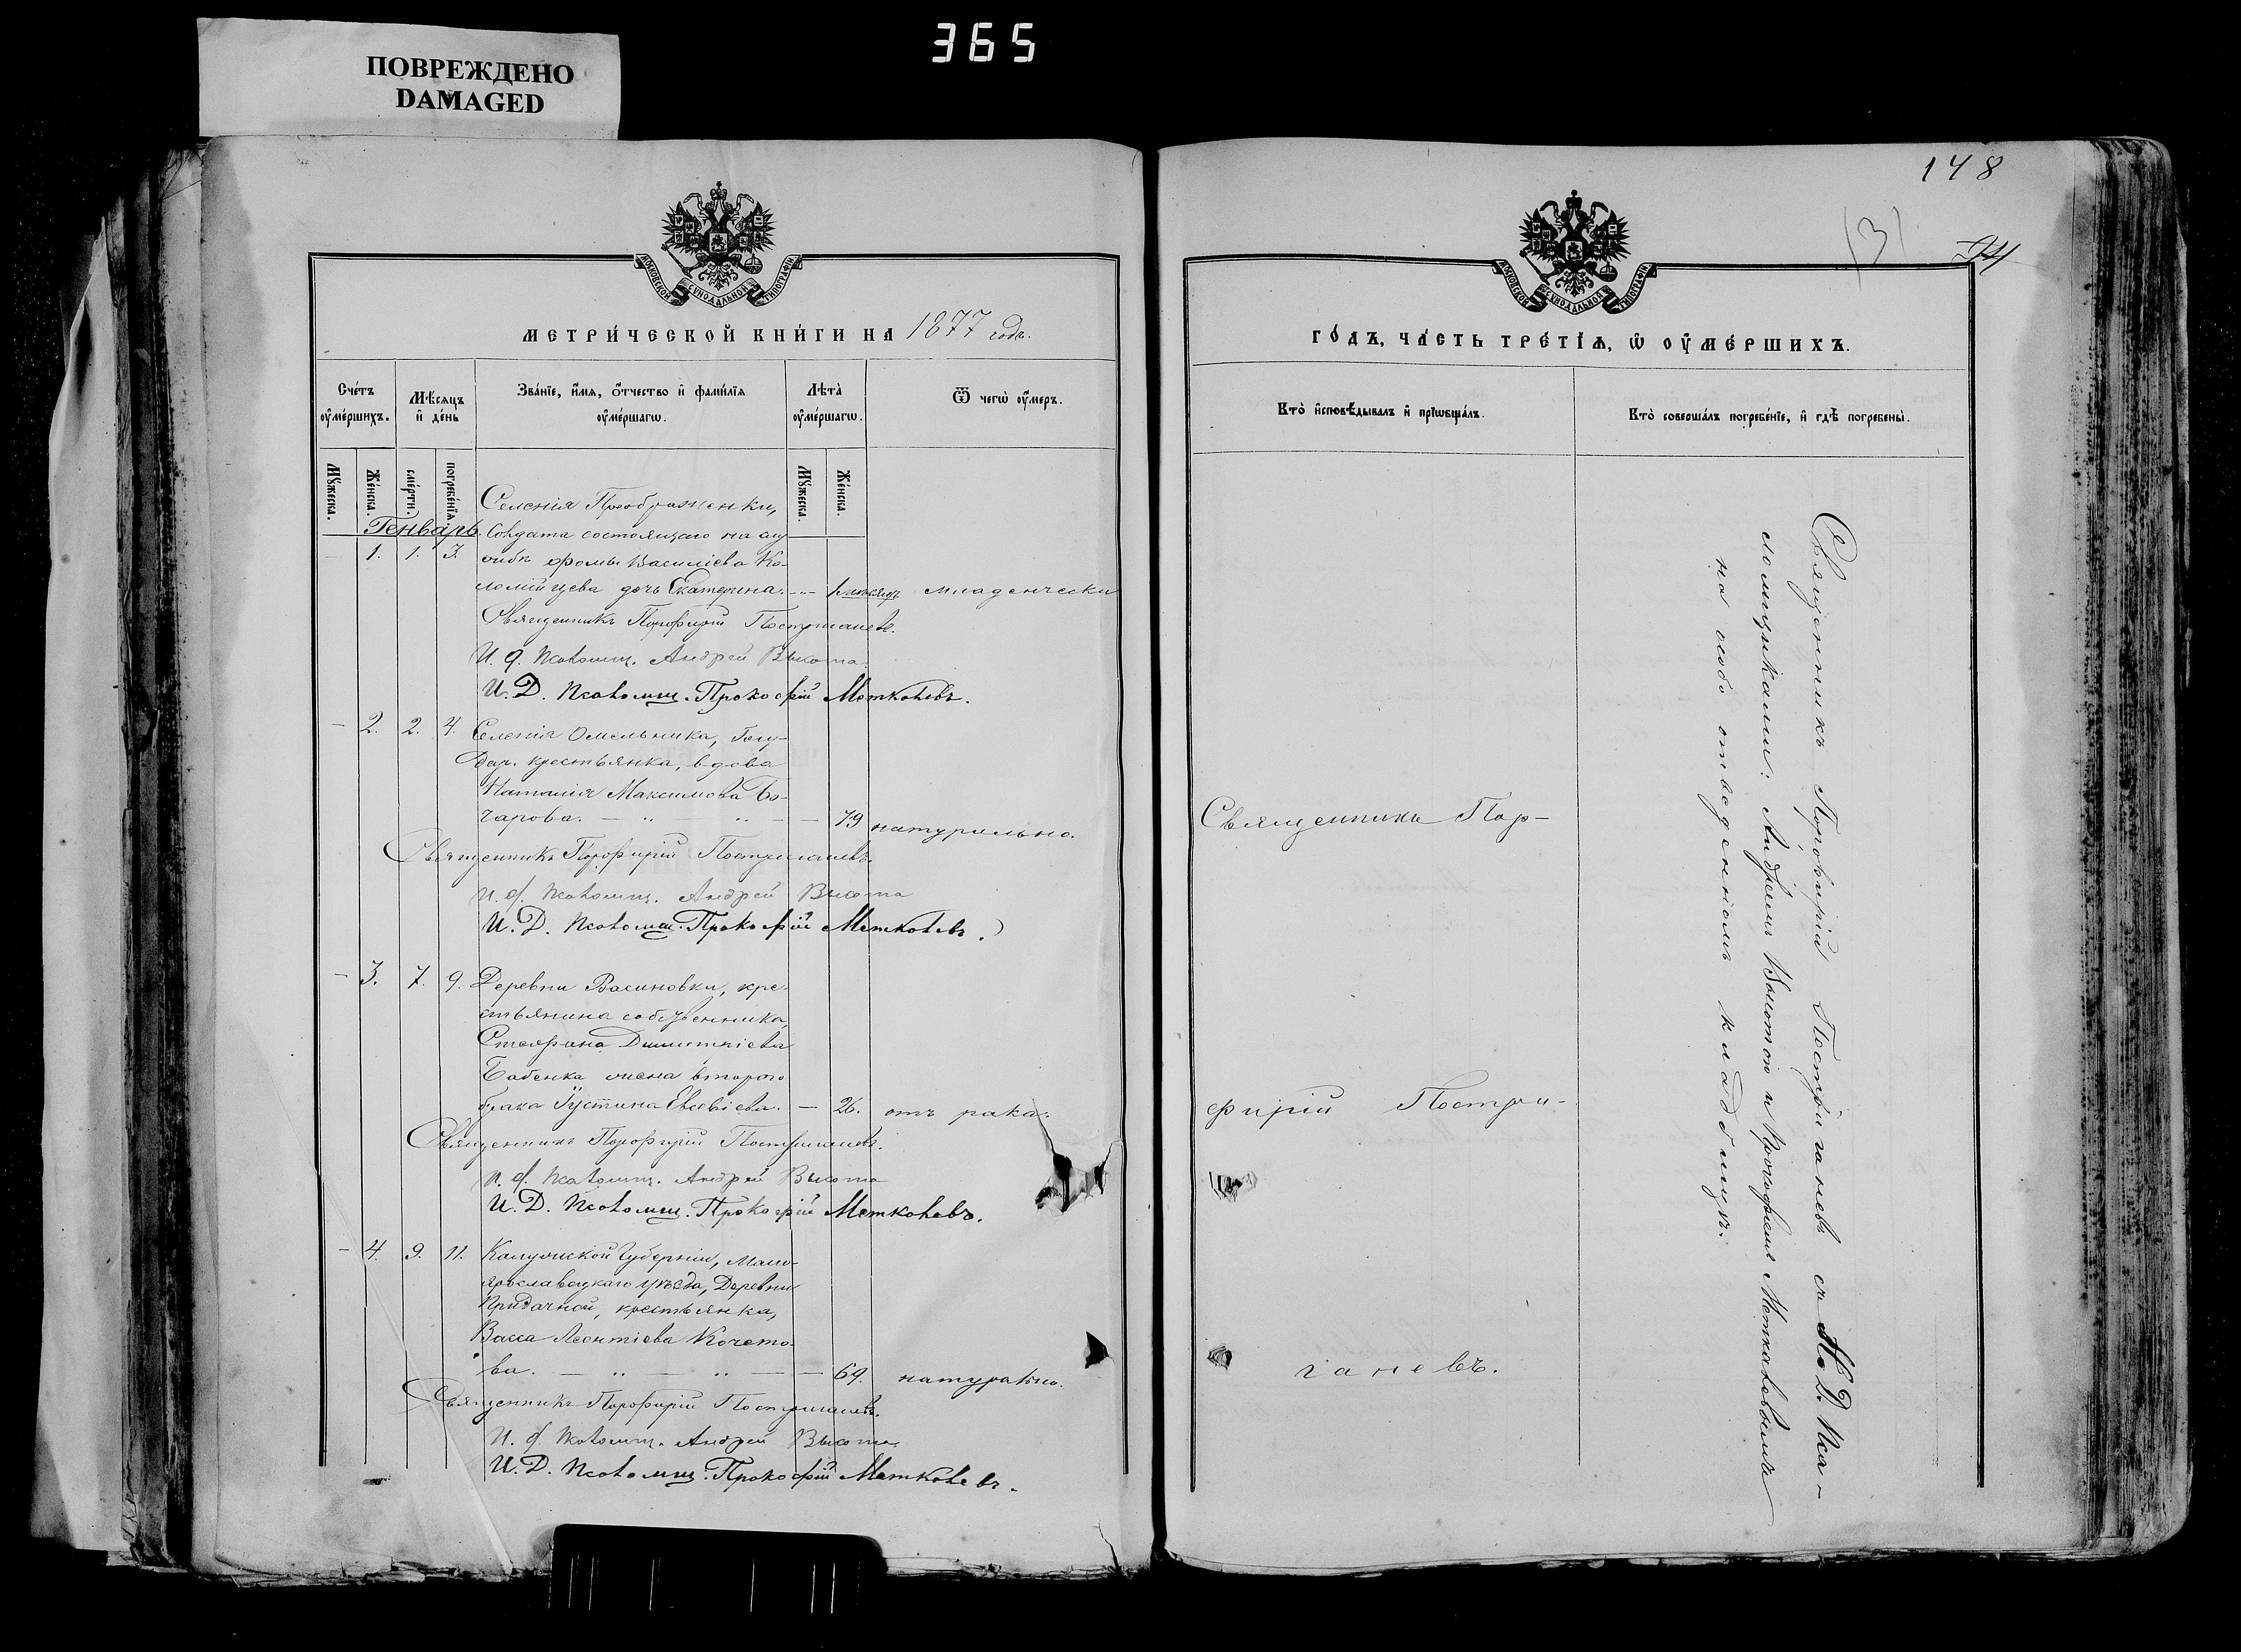 365
ПОВРЕЖДЕНО
DAMAGED
148
МОСКОВСКОЙ СУНОДАЛЬНОЙ ТИПОГРАФІИ
МЕТРИ́ЧЕСКОЙ КНИ́ГИ НА 1877 годъ.
Сче́тъ ᲂу҆ме́ршихъ.
Мѣ́сяцъ и҆ де́нь
Зва́нїе, и҆́мя, ѻ҆́тчество и҆ фамѝлїя ᲂу҆ме́ршагѡ.
Лѣта̀ ᲂу҆ме́ршагѡ.
Ѿ чегѡ̀ ᲂу҆́меръ.
Мꙋ́жеска.
Же́нска.
сме́рти.
погребе́нїя
Мꙋ́жеска.
Же́нска.
Генварь.
Селенія Преображенки,
Солдата состоящаго на слу
1. 1. 3. жбѣ Фомы Василіева Ко-
ломійцева дочь Екатерина. 1 мѣсяцъ младенчески
Священникъ Порфирій Постригачевъ.
И. д. псаломщ. Андрей Высота
И. Д. псаломщ. Прокофій Метковевъ.
— 2. 2. 4. Селенія Омельника, Госу-
дар. крестьянка, вдова
Наталія Максимова Бо-
чарова. — 79 натурально.
Священникъ Порфирій Постригачевъ.
И. д. псаломщ. Андрей Высота
И. Д. псаломщ. Прокофій Метковевъ.
— 3. 7. 9. Деревни Васиновки, кре-
стьянина собственника,
Стефана Димитріева
Бабенка жена втораго
брака Іустина Евсевіева. — 26. отъ рака.
Священникъ Порфирій Постригачевъ.
И. д. псаломщ. Андрей Высота
И. Д. псаломщ. Прокофій Метковевъ.
— 4. 9. 11. Калужской Губерніи, Мало-
ярославецкаго уѣзда, Деревни
Придачной, крестьянка,
Васса Леонтіева Кочето-
ва. — 69. натурально.
Священникъ Порфирій Постригачевъ.
И. д. псаломщ. Андрей Высота
И. Д. псаломщ. Прокофій Метковевъ.
МОСКОВСКОЙ СУНОДАЛЬНОЙ ТИПОГРАФІИ
ГО́ДЪ, ЧА́СТЬ ТРЕ́ТЇѦ, Ѡ҆ ОУ҆МЕ́РШИХЪ.
Кто̀ и҆сповѣ́дывалъ и҆ прїѡбща́лъ.
Кто̀ соверша́лъ погребе́нїе, и҆ гдѣ̀ погребены̀.
Священникъ Пор-
фирій Постри-
гачевъ.
Священникъ Порфирій Постригачевъ съ И. Д. Пса-
ломщиками: Андреемъ Высотою и Прокофіемъ Метковевымъ
на особо отведенномъ кладбищѣ.